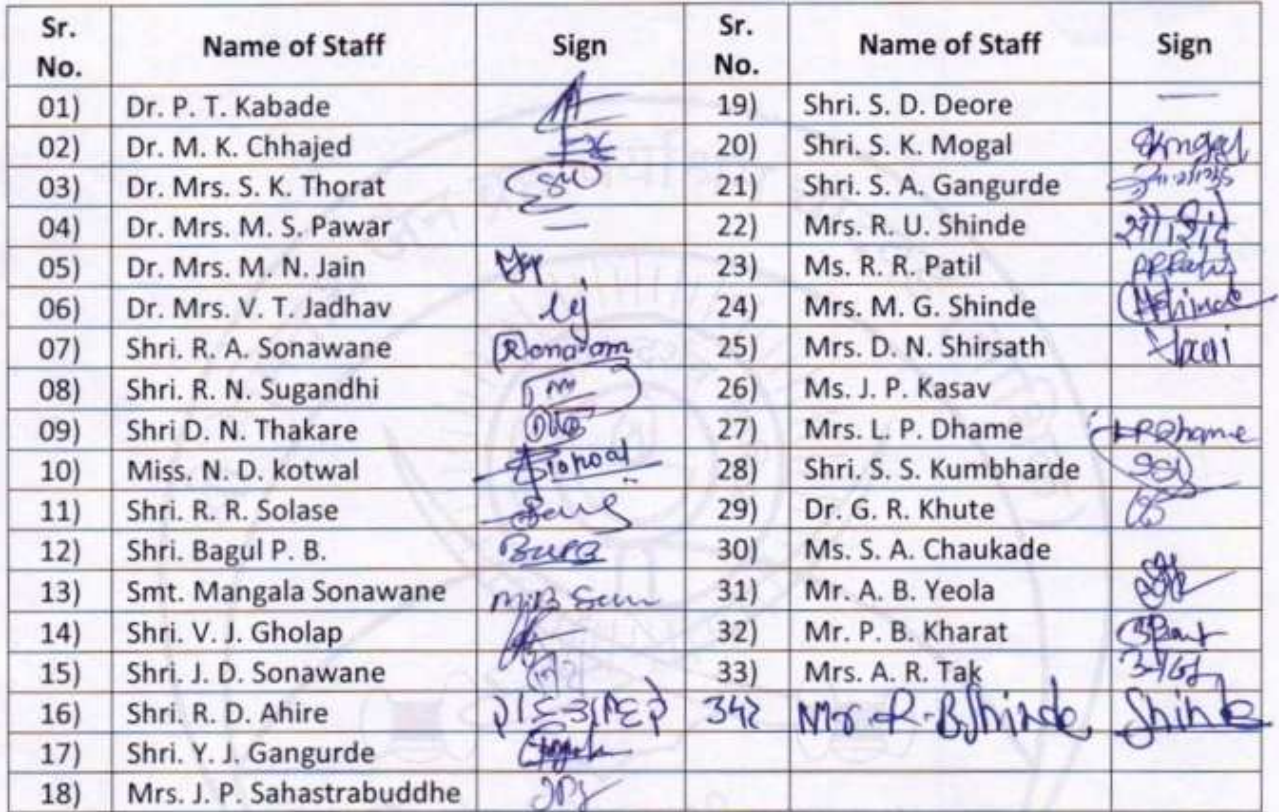 Sr. No. Name of Staff Sign Sr. No. Name of Staff Sign
01) Dr. P. T. Kabade 19) Shri. S. D. Deore —
02) Dr. M. K. Chhajed 20) Shri. S. K. Mogal Skmogal
03) Dr. Mrs. S. K. Thorat 21) Shri. S. A. Gangurde
04) Dr. Mrs. M. S. Pawar — 22) Mrs. R. U. Shinde
05) Dr. Mrs. M. N. Jain 23) Ms. R. R. Patil
06) Dr. Mrs. V. T. Jadhav 24) Mrs. M. G. Shinde
07) Shri. R. A. Sonawane 25) Mrs. D. N. Shirsath
08) Shri. R. N. Sugandhi 26) Ms. J. P. Kasav
09) Shri D. N. Thakare 27) Mrs. L. P. Dhame LPDhame
10) Miss. N. D. kotwal 28) Shri. S. S. Kumbharde
11) Shri. R. R. Solase 29) Dr. G. R. Khute
12) Shri. Bagul P. B. 30) Ms. S. A. Chaukade
13) Smt. Mangala Sonawane 31) Mr. A. B. Yeola
14) Shri. V. J. Gholap 32) Mr. P. B. Kharat
15) Shri. J. D. Sonawane 33) Mrs. A. R. Tak
16) Shri. R. D. Ahire Mr. R. B. Shinde Shinde
17) Shri. Y. J. Gangurde
18) Mrs. J. P. Sahastrabuddhe